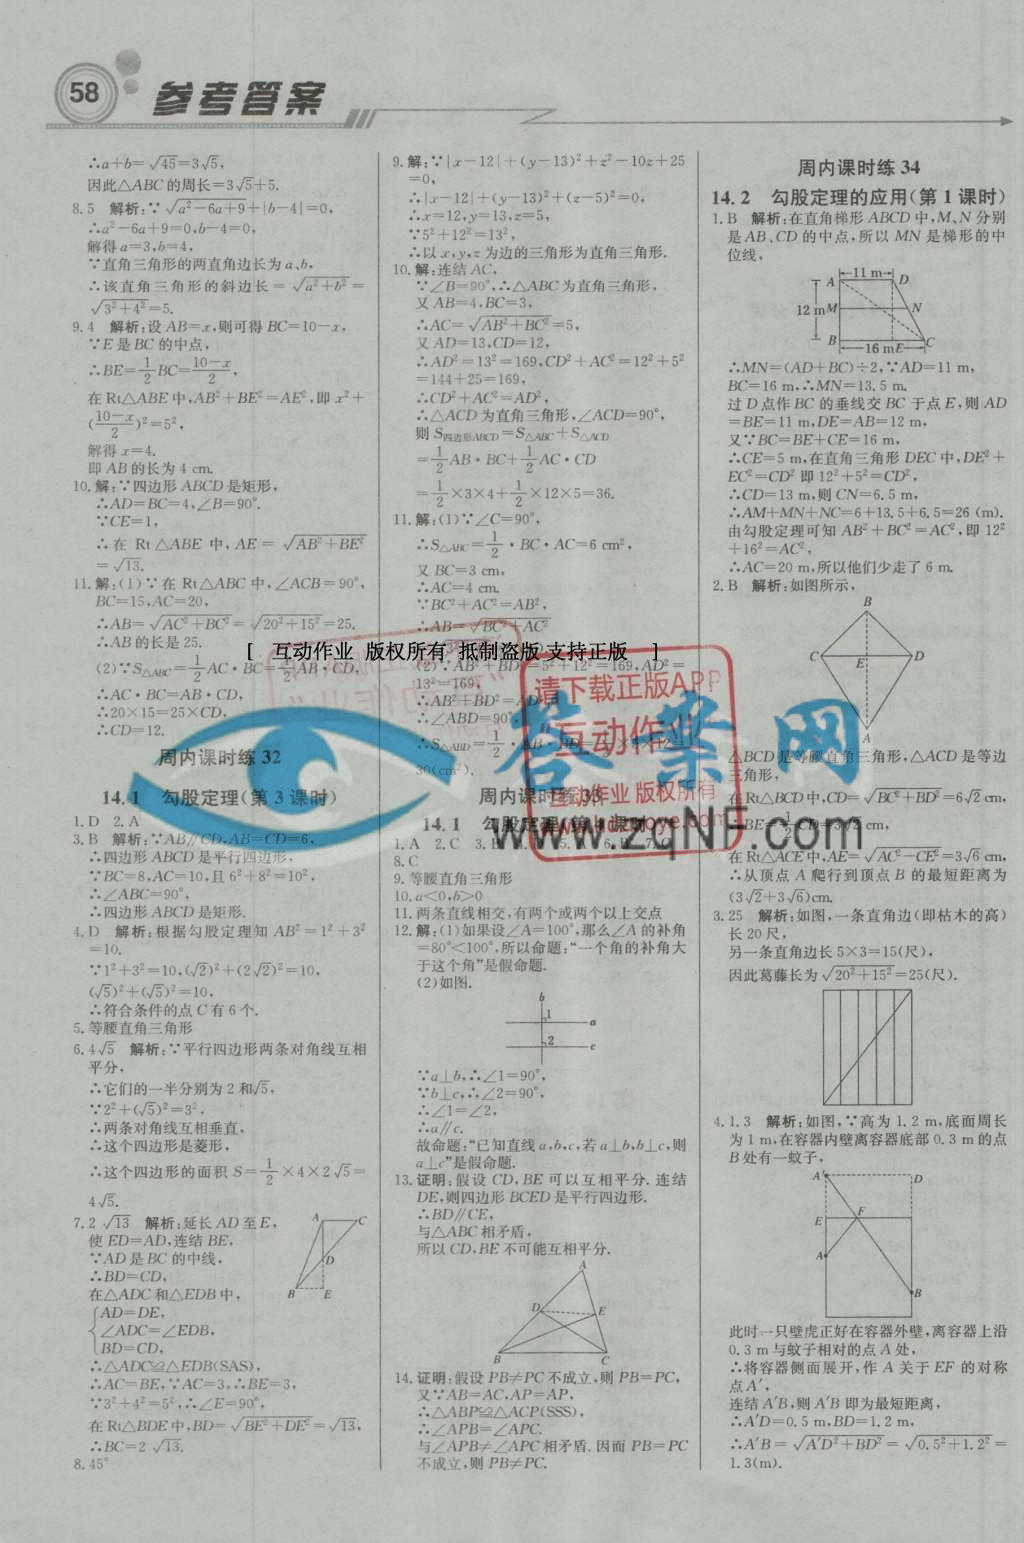 58 参考答案
∴a+b=√45=3√5,
因此△ABC的周长=3√5+5.
8.5 解析:∵√(a²-6a+9)+|b-4|=0,
∴a²-6a+9=0,b-4=0,
解得a=3,b=4,
∵直角三角形的两直角边长为a、b,
∴该直角三角形的斜边长=√(a²+b²)=
√(3²+4²)=5.
9.4 解析:设AB=x,则可得BC=10-x,
∵E是BC的中点,
∴BE=1/2BC=(10-x)/2,
在Rt△ABE中,AB²+BE²=AE²,即x²+
((10-x)/2)²=5²,
解得x=4.
即AB的长为4 cm.
10.解:∵四边形ABCD是矩形,
∴AD=BC=4,∠B=90°.
∵CE=1,
∴在Rt△ABE中,AE=√(AB²+BE²)
=√13.
11.解:(1)∵在Rt△ABC中,∠ACB=90°,
BC=15,AC=20,
∴AB=√(AC²+BC²)=√(20²+15²)=25.
∴AB的长是25.
(2)∵S△ABC=1/2AC·BC=1/2AB·CD,
∴AC·BC=AB·CD,
∴20×15=25×CD,
∴CD=12.
周内课时练32
14.1 勾股定理(第3课时)
1.D 2.A
3.B 解析:∵AB∥CD,AB=CD=6,
∴四边形ABCD是平行四边形,
∵BC=8,AC=10,且6²+8²=10²,
∴∠ABC=90°,
∴四边形ABCD是矩形.
4.D 解析:根据勾股定理知AB²=1²+3²
=10.
∵1²+3²=10,(√2)²+(2√2)²=10,
(√5)²+(√5)²=10,
∴符合条件的点C有6个.
5.等腰直角三角形
6.4√5 解析:∵平行四边形两条对角线互相
平分,
∴它们的一半分别为2和√5,
∵2²+(√5)²=3²,
∴两条对角线互相垂直,
∴这个四边形是菱形,
∴这个四边形的面积S=1/2×4×2√5=
4√5.
7.2√13 解析:延长AD至E,
使ED=AD,连结BE,
∵AD是BC的中线,
∴BD=CD,
在△ADC和△EDB中,
AD=DE,
∠ADC=∠EDB,
BD=CD,
∴△ADC≌△EDB(SAS),
∴AC=BE,∵AC=3,∴BE=3,
∵3²+4²=5²,∴∠E=90°,
在Rt△BDE中,BD=√(BE²+DE²)=√13,
∴BC=2√13.
A C D B E
8.45°
9.解:∵|x-12|+(y-13)²+z²-10z+25
=0,
∴|x-12|+(y-13)²+(z-5)²=0,
∴x=12,y=13,z=5,
∵5²+12²=13²,
∴以x,y,z为边的三角形为直角三角形.
10.解:连结AC,
∵∠B=90°,∴△ABC为直角三角形,
又AB=4,BC=3,
∴AC=√(AB²+BC²)=5,
又AD=13,CD=12,
∴AD²=13²=169,CD²+AC²=12²+5²
=144+25=169,
∴CD²+AC²=AD²,
∴△ACD为直角三角形,∠ACD=90°,
则S四边形ABCD=S△ABC+S△ACD
=1/2AB·BC+1/2AC·CD
=1/2×3×4+1/2×12×5=36.
11.解:(1)∵∠C=90°,
∴S△ABC=1/2·BC·AC=6 cm²,
又BC=3 cm,
∴AC=4 cm.
∵BC²+AC²=AB²,
∴AB=√(BC²+AC²)
(2)∵AB²+BD²=5²+12²=169,AD²=
13²=169,
∴AB²+BD²=AD²,
∴∠ABD=90°,
∴S△ABD=1/2·AB·BD=
30(cm²).
周内课时练33
14.1 勾股定理(第4课时)
1.A 2.C 3.
8.C
9.等腰直角三角形
10.a<0,b>0
11.两条直线相交,有两个或两个以上交点
12.解:(1)如果设∠A=100°,那么∠A的补角
=80°<100°,所以命题:“一个角的补角大
于这个角”是假命题.
(2)如图.
b 1 a 2 c
∵a⊥b,∴∠1=90°,
∵b⊥c,∴∠2=90°,
∴∠1=∠2,
∴a∥c.
故命题:“已知直线a,b,c,若a⊥b,b⊥c,则
a⊥c”是假命题.
13.证明:假设CD,BE可以互相平分.连结
DE,则四边形BCED是平行四边形.
∴BD∥CE,
与△ABC相矛盾,
所以CD,BE不可能互相平分.
A D E B C
14.证明:假设PB≠PC不成立,则PB=PC,
又∵AB=AC,AP=AP,
∴△ABP≌△ACP(SSS),
∴∠APB=∠APC.
与∠APB≠∠APC相矛盾.因而PB=PC
不成立,则PB≠PC.
周内课时练34
14.2 勾股定理的应用(第1课时)
1.B 解析:在直角梯形ABCD中,M、N分别
是AB、CD的中点,所以MN是梯形的中
位线,
11 m A D 12 m M N B 16 m E C
∴MN=(AD+BC)÷2,∵AD=11 m,
BC=16 m,∴MN=13.5 m.
过D点作BC的垂线交BC于点E,则AD
=BE=11 m,DE=AB=12 m,
又∵BC=BE+CE=16 m,
∴CE=5 m,在直角三角形DEC中,DE²+
EC²=CD²即12²+5²=CD²,
∴CD=13 m,则CN=6.5 m,
∴AM+MN+NC=6+13.5+6.5=26 (m).
由勾股定理可知AB²+BC²=AC²,即12²
+16²=AC²,
∴AC=20 m,所以他们少走了6 m.
2.B 解析:如图所示,
B C E D A
△BCD是等腰直角三角形,△ACD是等边
三角形,
在Rt△BCD中,CD=√(BC²+BD²)=6√2 cm,
∴BE=1/2CD=3√2 cm,
在Rt△ACE中,AE=√(AC²-CE²)=3√6 cm,
∴从顶点A爬行到顶点B的最短距离为
(3√2+3√6)cm.
3.25 解析:如图,一条直角边(即枯木的高)
长20尺,
另一条直角边长5×3=15(尺),
因此葛藤长为√(20²+15²)=25(尺).
4.1.3 解析:如图,∵高为1.2 m,底面周长
为1 m,在容器内壁离容器底部0.3 m的点
B处有一蚊子,
A′ D E F A B
此时一只壁虎正好在容器外壁,离容器上沿
0.3 m与蚊子相对的点A处,
∴将容器侧面展开,作A关于EF的对称
点A′,
连结A′B,则A′B即为最短距离,
∴A′D=0.5 m,BD=1.2 m,
∴A′B=√(A′D²+BD²)=√(0.5²+1.2²)=
1.3(m).
[ 互动作业 版权所有 抵制盗版 支持正版 ]
请下载正版APP
互动作业
互动作业 版权所有
答案网
www.zqNF.com